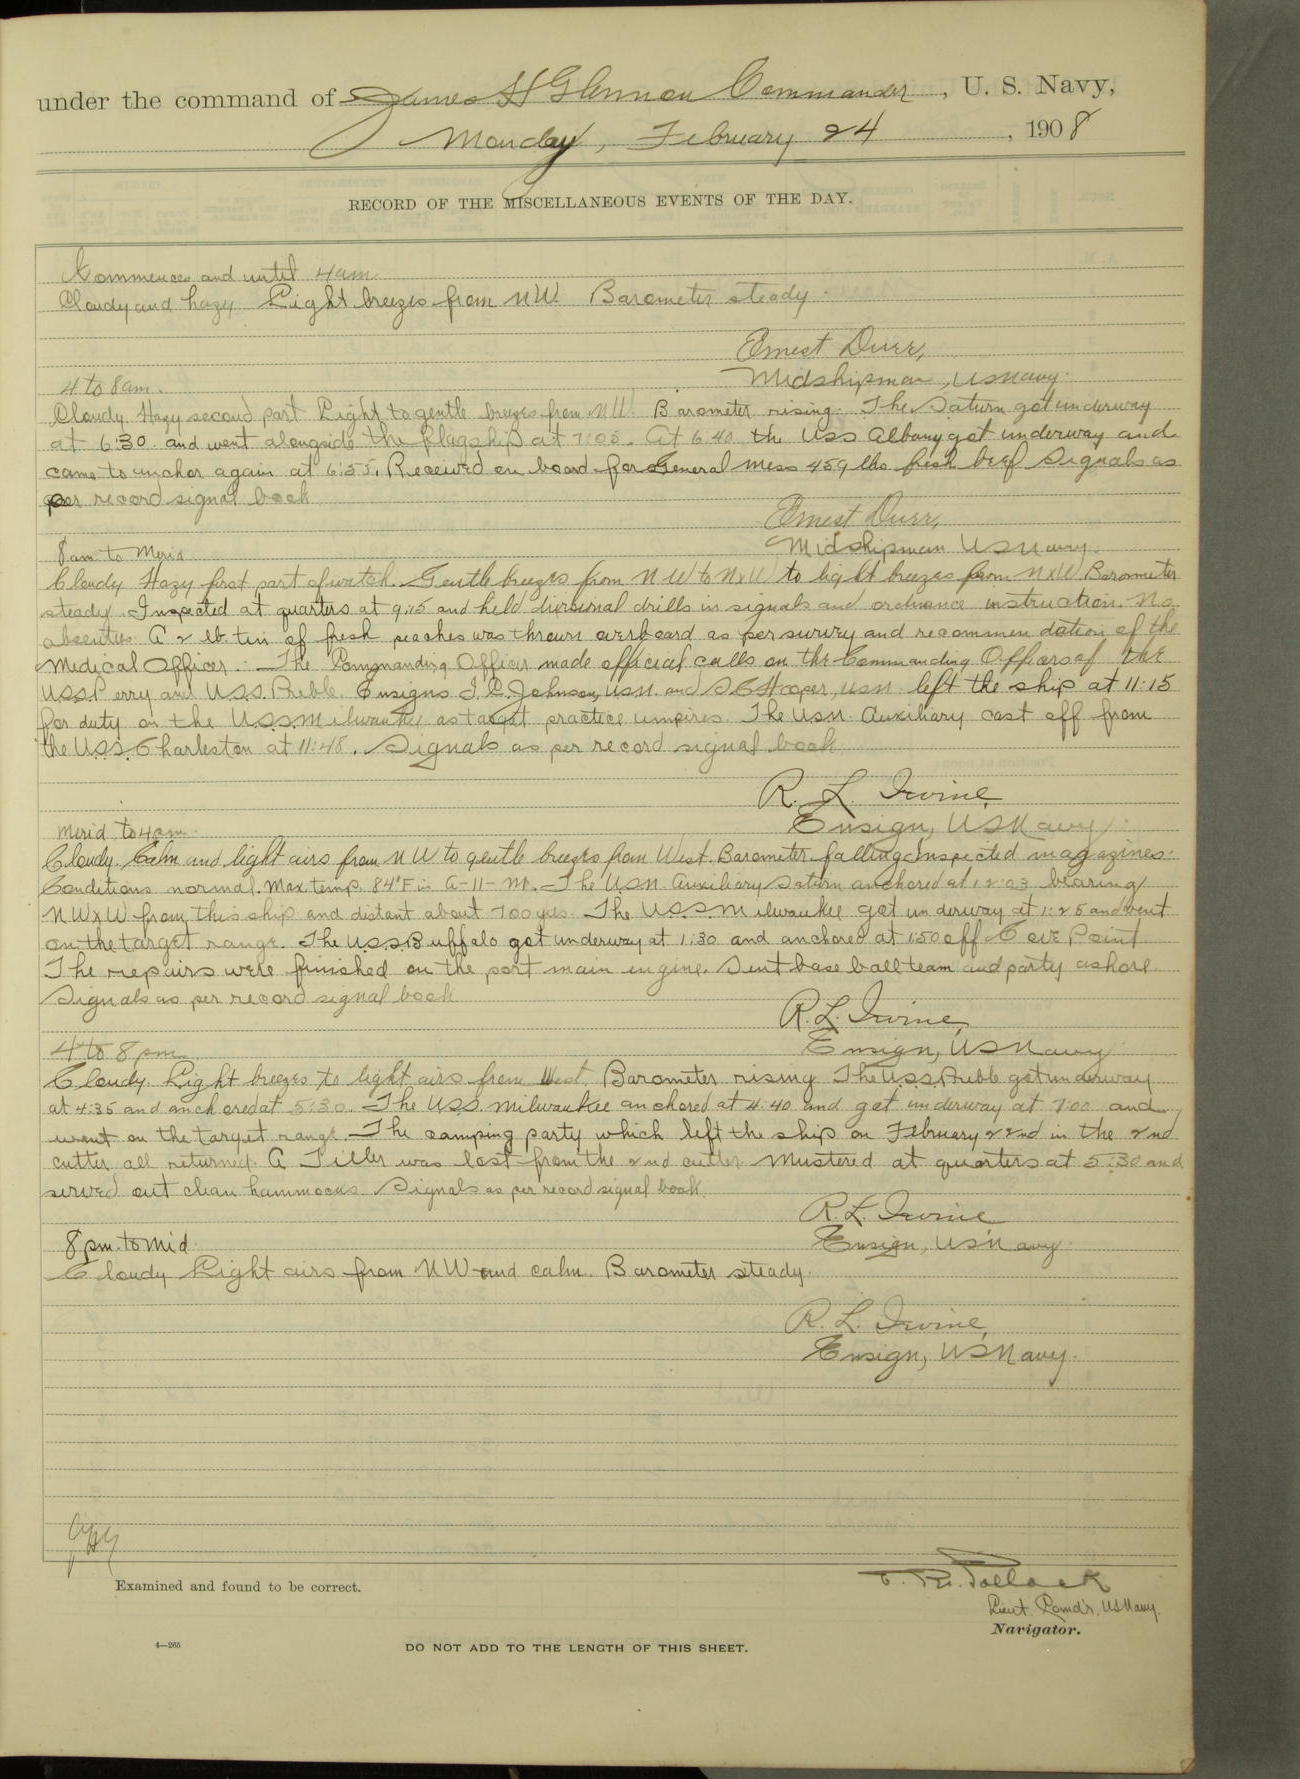 under the command of James H Glennon Commander, U. S. Navy,
Monday, February 24, 1908
RECORD OF THE MISCELLANEOUS EVENTS OF THE DAY.
Commences and until 4 am.
Cloudy and hazy. Light breezes from NW. Barometer steady.
Ernest Durr,
Midshipman, US Navy.
4 to 8 am.
Cloudy. Hazy second part. Light to gentle breezes from NW. Barometer rising. The Saturn got underway
at 6:30 and went alongside the flagship at 7:05. At 6:40 the USS Albany got underway and
came to anchor again at 6:55. Received on board for General Mess 459 lbs fresh beef Signals as
per record signal book
Ernest Durr,
Midshipman US Navy.
8 am to Merid
Cloudy Hazy first part of watch. Gentle breezes from NW to NxW to light breezes from NxW Barometer
steady. Inspected at quarters at 9:15 and held divisional drills in signals and ordnance instruction. No
absentees. A 2 lb. tin of fresh peaches was thrown overboard as per survey and recommendation of the
Medical Officer. The Commanding Officer made official calls on the Commanding Officers of the
U.S.S. Perry and U.S.S. Preble. Ensigns I. C. Johnson, USN. and S C Hooper, USN. left the ship at 11:15
for duty on the U.S.S. Milwaukee as target practice umpires. The USN. Auxiliary cast off from
the U.S.S. Charleston at 11:48. Signals as per record signal book
R. L. Irvine
Ensign, US Navy.
Merid to 4 pm.
Cloudy. Calm and light airs from NW to gentle breezes from West. Barometer falling. Inspected magazines.
Conditions normal. Max. temp. 84°F in A-11-M. The USN Auxiliary Saturn anchored at 12:03 bearing
NWxW from this ship and distant about 700 yds. The U.S.S. Milwaukee got underway at 1:25 and went
on the target range. The U.S.S. Buffalo got underway at 1:30 and anchored at 1:50 off Cove Point.
The repairs were finished on the port main engine. Sent base ball team and party ashore.
Signals as per record signal book
R. L. Irvine,
Ensign, US Navy
4 to 8 pm.
Cloudy. Light breezes to light airs from West. Barometer rising The U.S.S. Preble got underway
at 4:35 and anchored at 5:30. The U.S.S. Milwaukee anchored at 4:40 and got underway at 7:00 and
went on the target range. The camping party which left the ship on February 22nd in the 2nd
cutter all returned. A Tiller was lost from the 2nd cutter. Mustered at quarters at 5:30 and
served out clean hammocks. Signals as per record signal book.
R. L. Irvine
Ensign, US Navy
8 pm. to Mid.
Cloudy Light airs from NW and calm. Barometer steady.
R. L. Irvine,
Ensign, US Navy.
Examined and found to be correct.
Pollock
Lieut. Comd'r. US Navy.
Navigator.
4—265
DO NOT ADD TO THE LENGTH OF THIS SHEET.